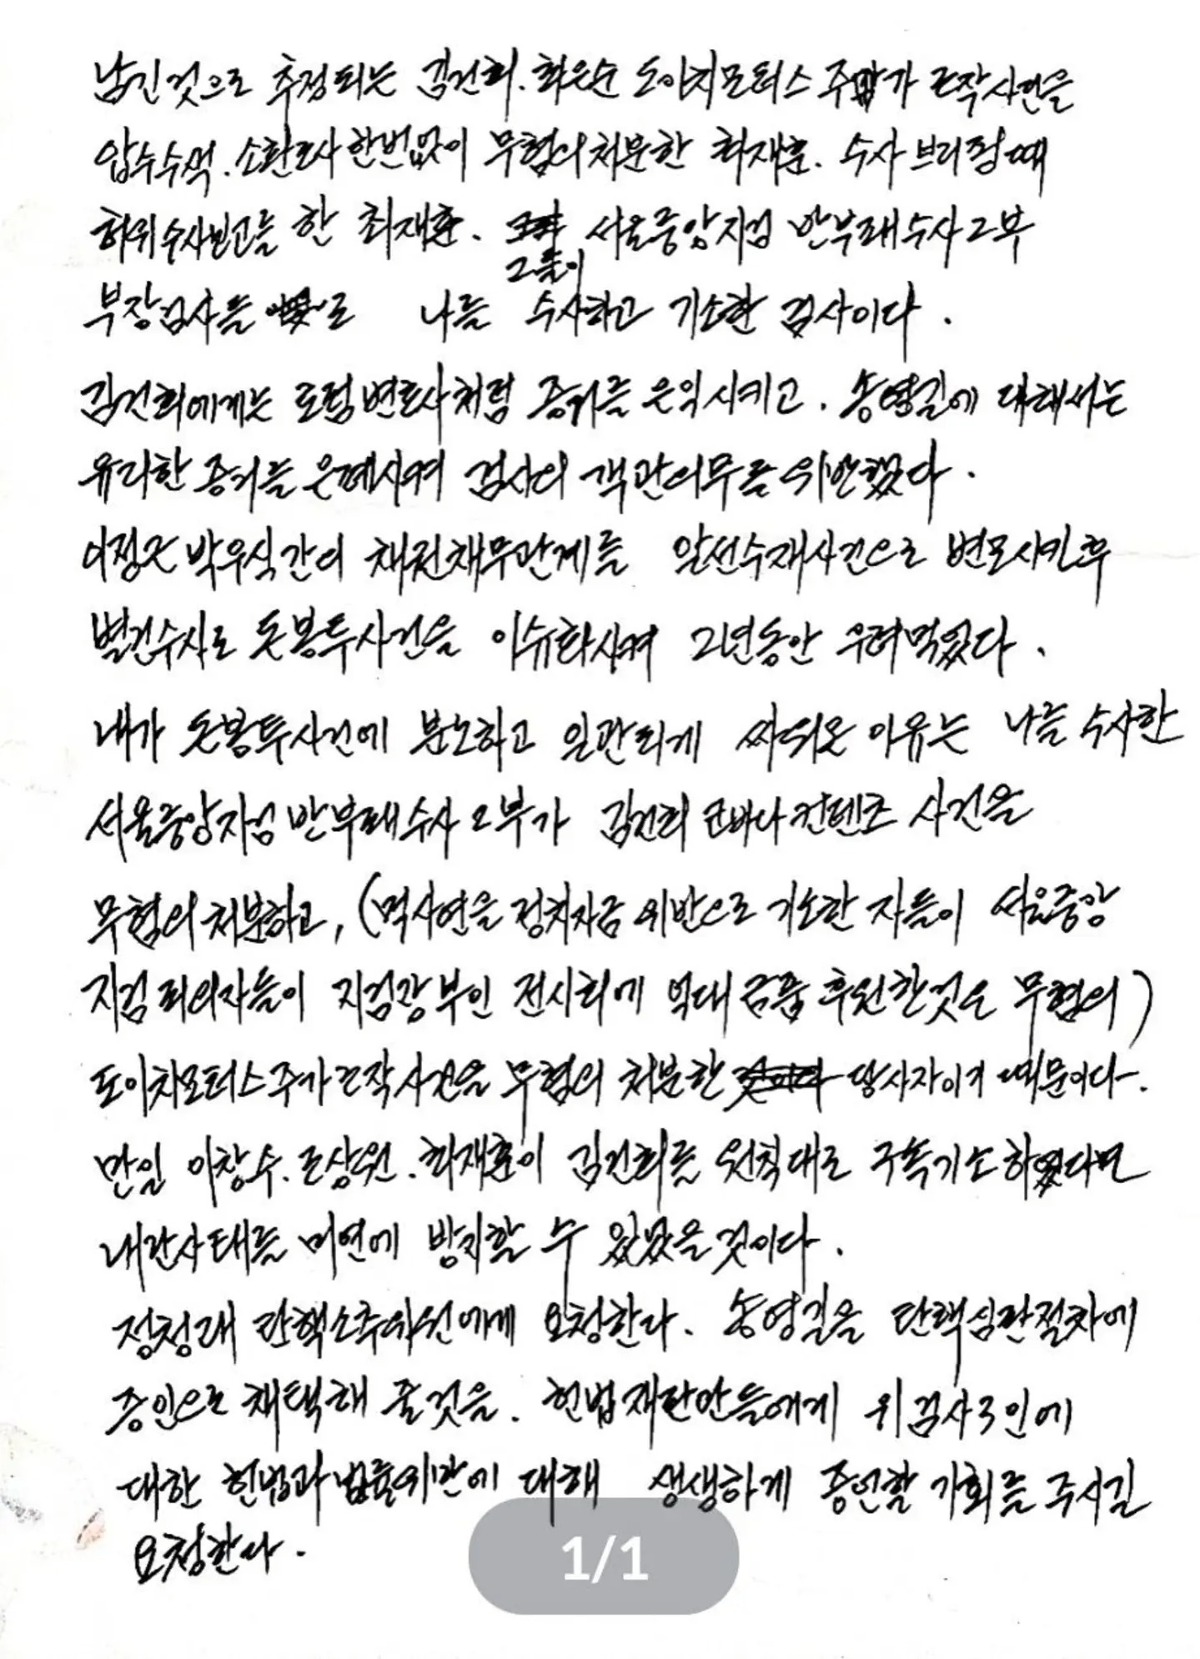 남긴것으로 추정되는 김건희.최은순 도이치모터스 주가 조작사건을
압수수색.소환조사 한번없이 무혐의처분한 최재훈. 수사 브리핑때
허위수사보고를 한 최재훈. 서울중앙지검 반부패수사2부
그들이
부장검사들 로 나를 수사하고 기소한 검사이다.
김건희에게는 로펌변호사처럼 증거를 은익시키고. 송영길에 대해서는
유리한 증거를 은폐시켜 검사의 객관의무를 위반했다.
이정근 박우식간의 채권채무관계를 알선수재사건으로 변모시킨후
별건수사로 돈봉투사건을 이슈화시켜 2년동안 우려먹었다.
내가 돈봉투사건에 분노하고 일관되게 싸워온 이유는 나를 수사한
서울중앙지검 반부패수사2부가 김건희 코바나컨텐츠 사건을
무혐의처분하고, (먹사연을 정치자금 위반으로 기소한 자들이 서울중앙
지검 피의자들이 지검장부인 전시회에 억대 금품 후원한것은 무혐의)
도이치모터스주가조작사건을 무혐의 처분한 당사자이기 때문이다.
만일 이창수.조상원.최재훈이 김건희를 원칙대로 구속기소하였다면
내란사태를 미연에 방지할 수 있었을것이다.
정청래 탄핵소추위원에게 요청한다. 송영길을 탄핵심판절차에
증인으로 채택해 줄것을. 헌법재판관들에게 위 검사3인에
대한 헌법과 법률위반에 대해 생생하게 증언할 기회를 주시길
요청한다.
1/1